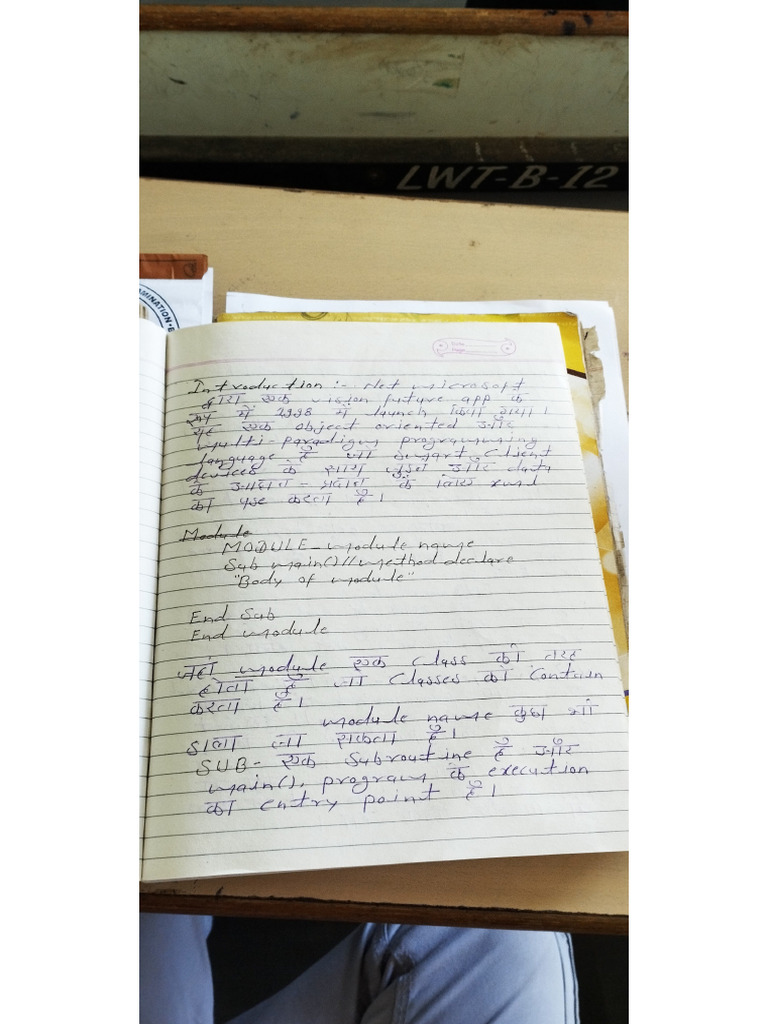 LWT-B-12
MINATION
Date
Page
Introduction :- .Net microsoft
द्वारा एक vision future app के
रूप में 1998 में launch किया गया।
यह एक object oriented और
multi-paradigm programming
language है जो smart client
devices के साथ जुड़ने और data
के आदान-प्रदान के लिए xml
का use करता है।
Module
MODULE_module name
Sub main() // method declare
"Body of module"
End Sub
End module
जहाँ module एक class की तरह
होता है जो classes को contain
करता है।
module name कुछ भी
डाला जा सकता है।
SUB- एक Subroutine है और
main(), program के execution
का entry point है।